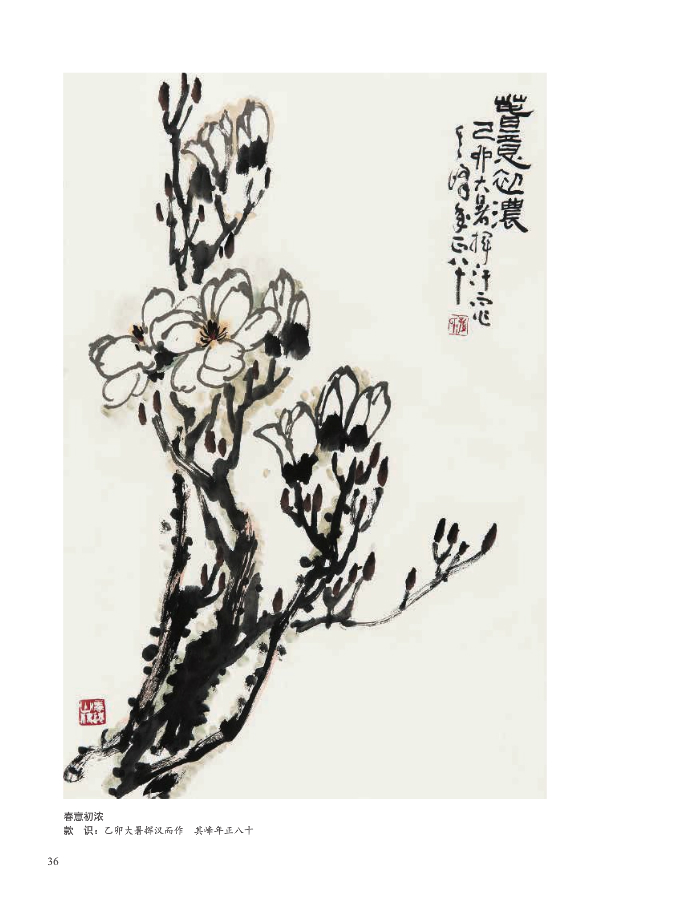 春意初濃
己卯大暑揮汗而作
其峰年正八十
春意初浓
款　识：乙卯大暑挥汉而作　其峰年正八十
36